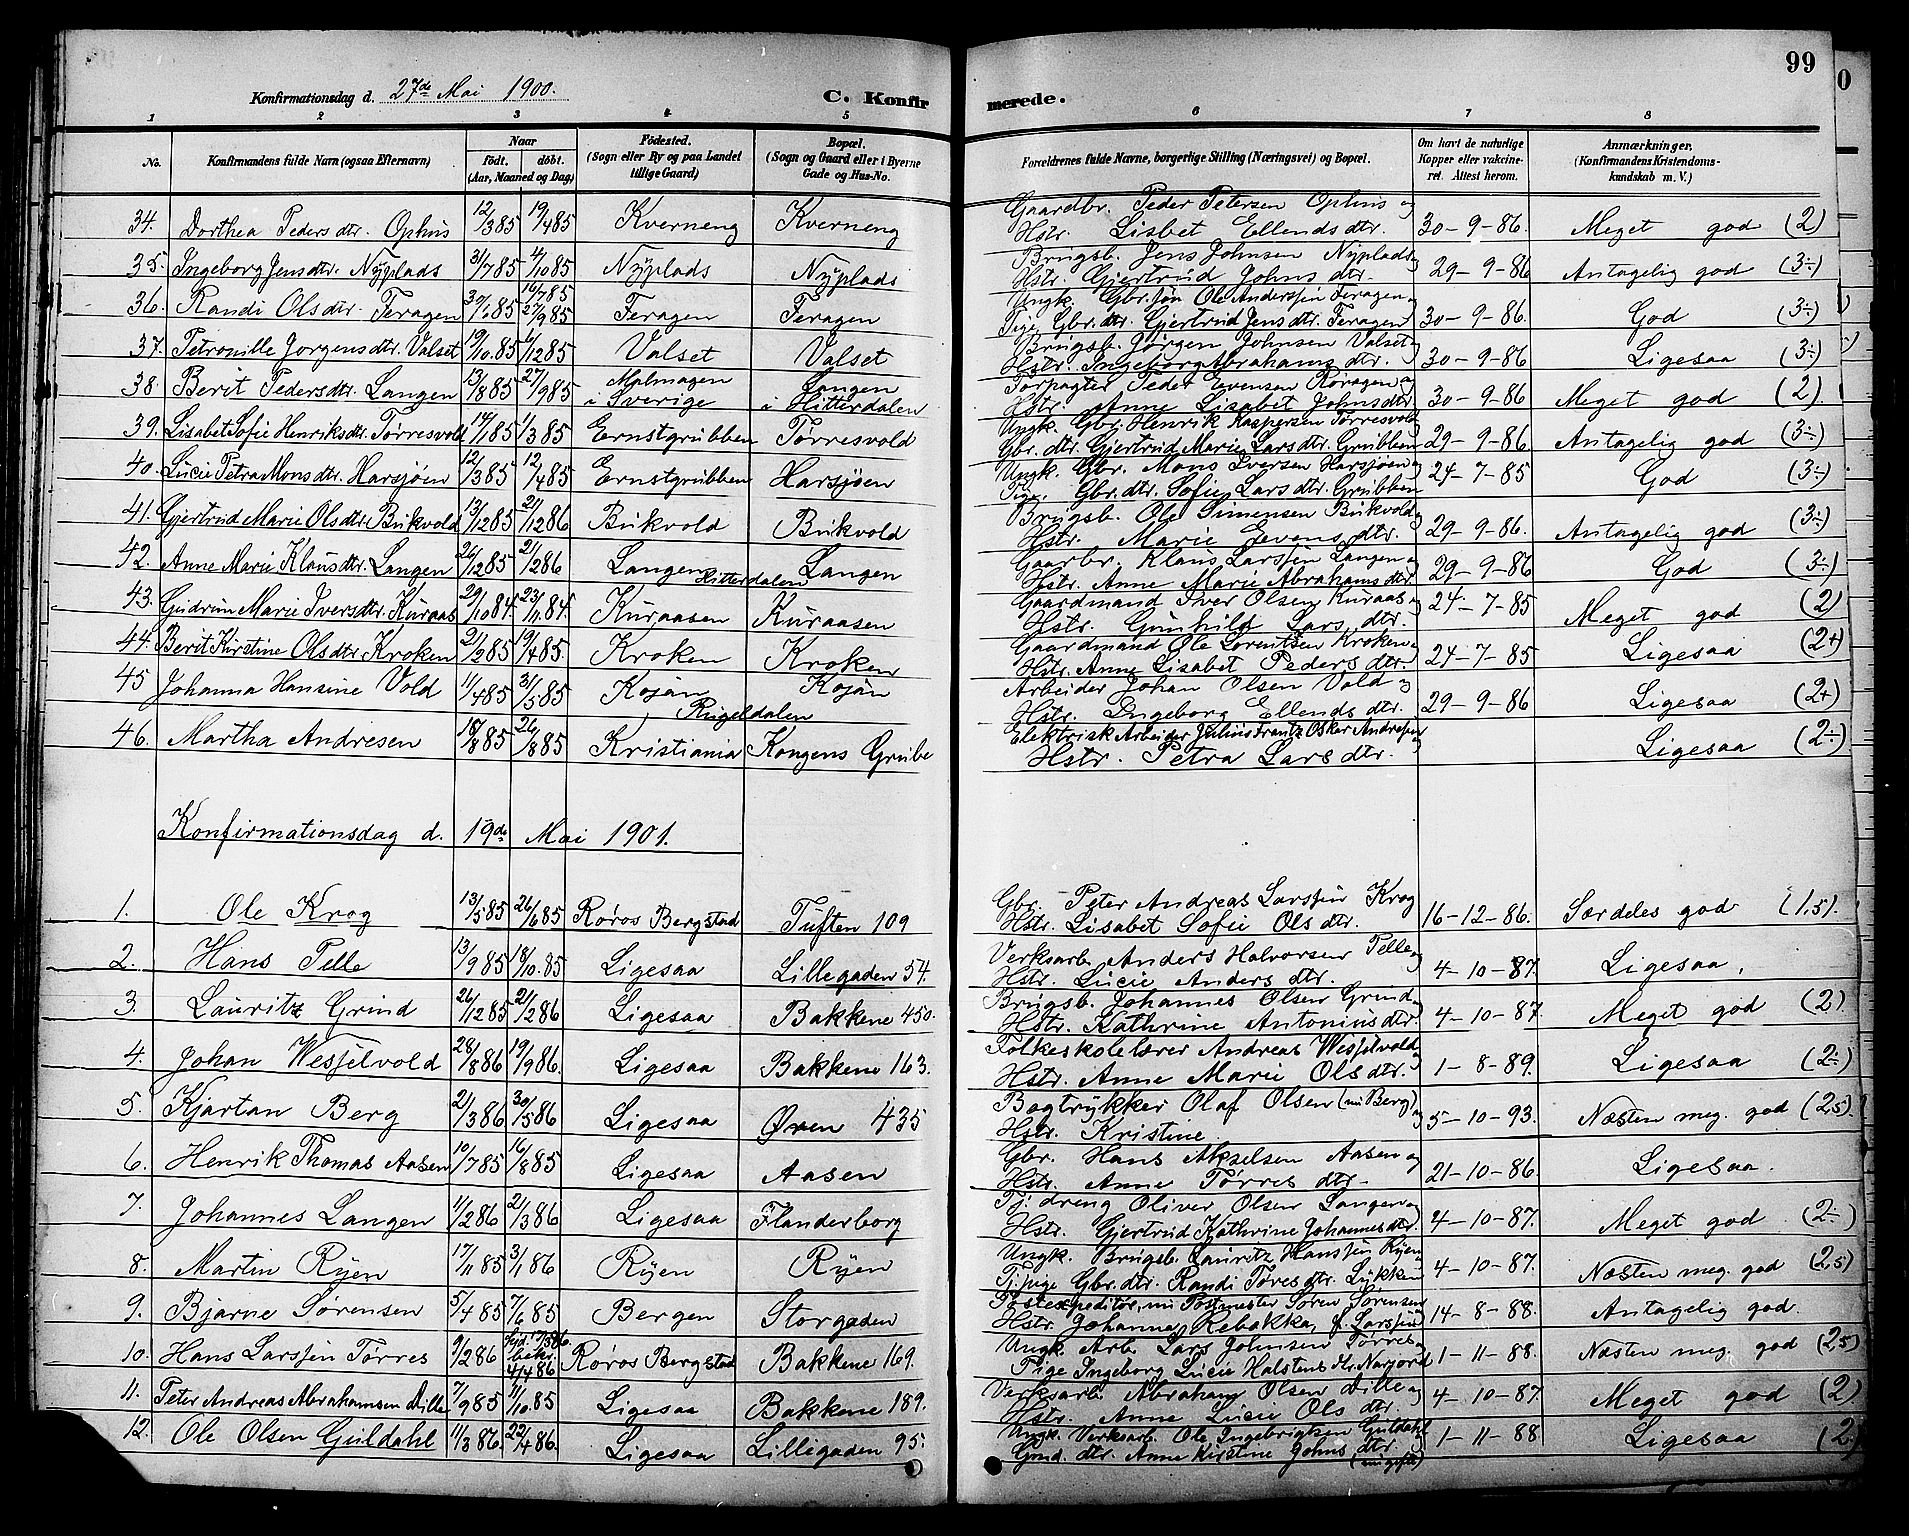 99
Konfirmationsdag d. 27de Mai 1900. C. Konfirmerede.
1 2 3 4 5 6 7 8
No. Konfirmandens fulde Navn (ogsaa Efternavn) Naar født. døbt. (Aar, Maaned og Dag) Fødested. (Sogn eller By og paa Landet tillige Gaard) Bopæl. (Sogn og Gaard eller i Byerne Gade og Hus-No. Forældrenes fulde Navne, borgerlige Stilling (Næringsvei) og Bopæl. Om havt de naturlige Kopper eller vakcineret. Attest herom. Anmærkninger. (Konfirmandens Kristendomskundskab m. V.)
34. Dorthea Pedersdtr. Ophus 12/3 85 19/4 85 Kverneng Kverneng Gaardbr. Peder Petersen Ophus og Hstr. Lisbet Ellendsdtr. 30-9-86. Meget god (2)
35. Ingeborg Jensdtr. Nÿplads 31/7 85 4/10 85 Nÿplads Nÿplads Brugsb. Jens Johnsen Nÿplads og Hstr. Gjertrud Johnsdtr. 29-9-86 Antagelig god (3÷)
36. Randi Olsdtr. Feragen 30/6 85 16/7 85 27/9 85 Feragen Feragen Ungk. Gbr.søn Ole Anderssen Feragen og Pige Gbr.dtr. Gjertrud Jensdtr. Feragen 30-9-86. God (3÷)
37. Petronille Jorgensdtr. Valset 19/10 85 6/12 85 Valset Valset Brugsb. Jørgen Johnsen Valset og Hstr. Ingeborg Abrahamsdtr. 30-9-86 Ligesaa (3÷)
38. Berit Pedersdtr. Langen 13/8 85 27/9 85 Malmagen i Sverige Langen i Hitterdalen Forpagter Peder Evensen Roragen og Hstr. Anne Lisabet Johnsdtr 30-9-86 Meget god (2).
39. Lisabet Sofie Henriksdtr. Tørresvold 14/1 85 1/3 85 Ernstgrubben Tørresvold Ungk. Gbr. Henrik Kaspersen Tørresvold og Gbr. dtr. Gjertrud Marie Larsdtr. Grubben 29-9-86. Antagelig god (3÷)
40. Lucie Petra Monsdtr. Harsjøen 12/3 85 12/4 85 Ernstgrubben Harsjøen Ungk. Gbr. Mons Iversen Harsjøen og Pige. Gbr.dtr. Sofie Larsdtr. Grubben 24-7-85 God (3÷)
41. Gjertrud Marie Olsdtr. Bukvold 13/12 85 21/12 86 Bukvold Bukvold Brugsb. Ole Simensen Bukvold og Hstr. Marie Evensdtr. 29-9-86. Antagelig god (3÷)
42. Anne Marie Klausdtr. Langen 26/12 85 21/2 86 Langen Hitterdalen Langen Gaarbr. Klaus Larssen Langen og Hstr. Anne Marie Abrahamsdtr 29-9-86 God (3÷)
43. Gudrun Marie Iversdtr. Kuraas 29/10 84. 23/11 84. Kuraasen Kuraasen Gaardmand Iver Olsen Kuraas og Hstr. Gunhild Larsdtr. 24-7-85 Meget god (2)
44. Berit Kirstine Olsdtr. Kroken 21/2 85 19/4 85. Kroken Kroken Gaardmand Ole Lorentsen Kroken og Hstr. Anne Lisabet Pedersdtr. 24-7-85 Ligesaa (2+)
45 Johanna Hansine Vold 11/4 85 31/5 85 Kojan Rugeldalen Kojan Arbeider Johan Olsen Vold og Hstr. Ingeborg Ellendsdtr. 29-9-86 Ligesaa (2+)
46. Martha Andresen 18/8 85 26/8 85 Kristiania Kongens Grube Elektrisk Arbeider Julius Frantz Oskar Andresen og Hstr. Petra Larsdtr. Ligesaa (2÷)
Konfirmationsdag d. 19de Mai 1901.
1. Ole Krog 13/5 85 26/6 85 Røros Bergstad Tuften 109 Gbr. Peter Andreas Larssen Krog Hstr. Lisabet Sofie Olsdtr. 16-12-86. Særdeles god (1,5).
2. Hans Telle 13/9 85 18/10 85 Ligesaa Lillegaden 54. Verksarb. Anders Halvorsen Telle og Hstr. Lucie Andersdtr. 4-10-87. Ligesaa.
3. Lauritz Grind 26/12 85 21/2 86 Ligesaa Bakkene 450. Brugsb. Johannes Olsen Grind og Hstr. Kathrine Antoniusdtr. 4-10-87. Meget god (2)
4. Johan Wesselvold 28/8 86 19/9 86. Ligesaa Bakkene 163. Folkeskolelærer Andreas Wesselvold og Hstr. Anne Marie Olsdtr. 1-8-89. Ligesaa (2÷)
5. Kjartan Berg 21/3 86 30/5 86 Ligesaa Øren 435 Bogtrykker Olaf Olsen (nu Berg) og Hstr. Kristine 5-10-93. Næsten meg. god (2,5).
6. Henrik Thomas Aasen 10/7 85 16/8 85 Ligesaa Aasen Gbr. Hans Akselsen Aasen og Hstr. Anne Tørresdtr. 21-10-86. Ligesaa.
7. Johannes Langen 11/2 86 21/3 86 Ligesaa Flanderborg Tj. dreng Oliver Olsen Langen og Hstr. Gjertrud Kathrine Johannesdtr. 4-10-87. Meget god (2÷)
8. Martin Rÿen 17/11 85 3/1 86 Rÿen Rÿen Ungk. Brugsb. Lauritz Hanssen Rÿen og Tj.pige Gbr.dtr. Randi Tøresdtr. Lukken 4-10-87. Næsten meg. god (2,5)
9. Bjarne Sørensen 5/4 85 7/6 85 Bergen Storgaden Postexpeditør, nu Postmester Søren Sørensen og Hstr. Johanna Rebakka, f. Larssen 14-8-88. Antagelig god.
10. Hans Larssen Tørres 9/2 86 hjd. 17/3 86 bekr. 4/4 86 Røros Bergstad Bakkene 169. Ungk. Arb. Lars Johnsen Tørres og Pige Ingeborg Lucie Halstensdtr. Narjord 1-11-88. Næsten meg. god (2,5)
11. Peter Andreas Abrahamsen Dille 7/9 85 11/10 85 Ligesaa Bakkene 189. Verksarb. Abraham Olsen Dille og Hstr. Anne Lucie Olsdtr. 4-10-87 Meget god (2)
12. Ole Olsen Guldahl 11/3 86. 22/4 86. Ligesaa Lillegaden 95. Ungk. Verksarb. Ole Ingebrigtsen Guldahl og Gmd. dtr. Anne Kirstine Johnsdtr. (nu gifte) 1-11-88 Ligesaa (2)